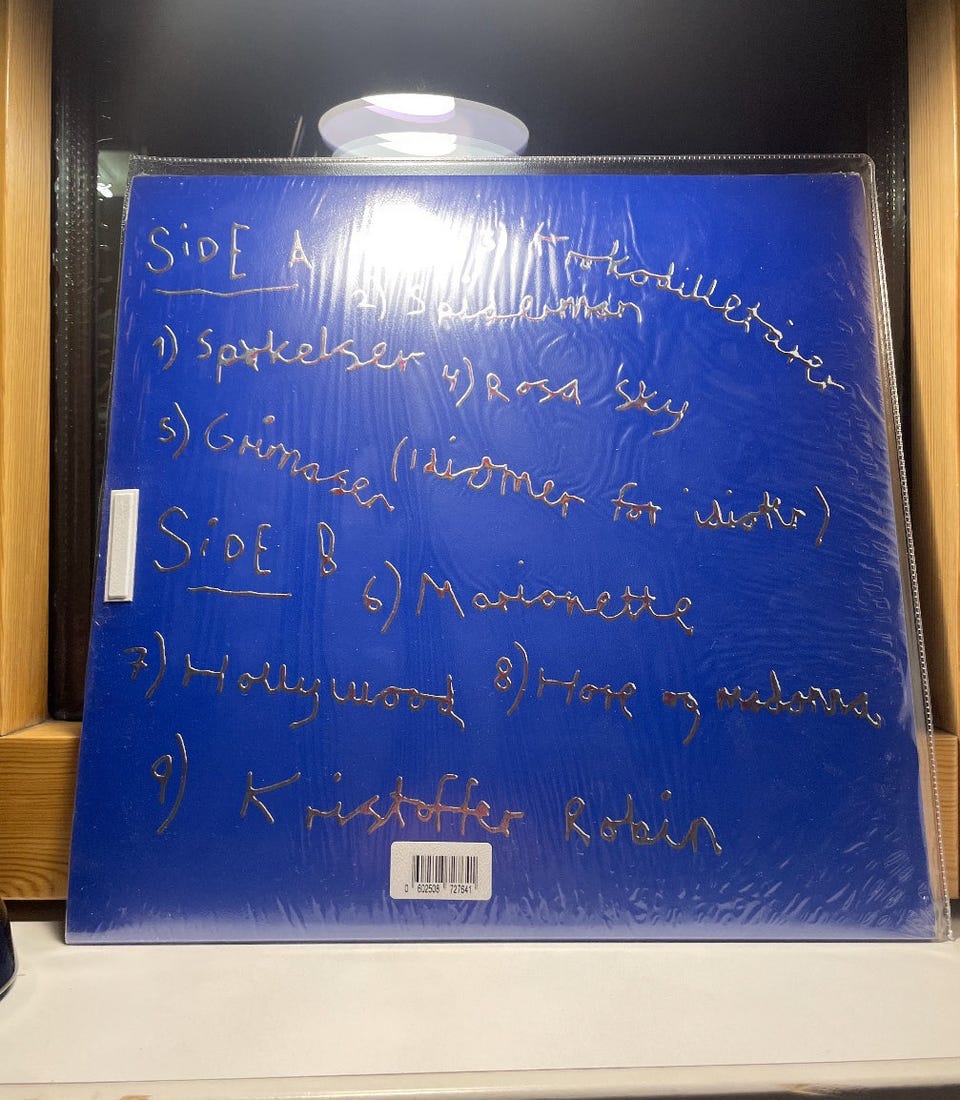 SiDE A
1) Spøkelser
2) Spiderman
3) Krokodilletårer
4) Rosa Sky
5) Grimaser (Idiomer for idioter)
SiDE B
6) Marionette
7) Hollywood
8) Hore og madonna
9) Kristoffer Robin
0 602508 727641